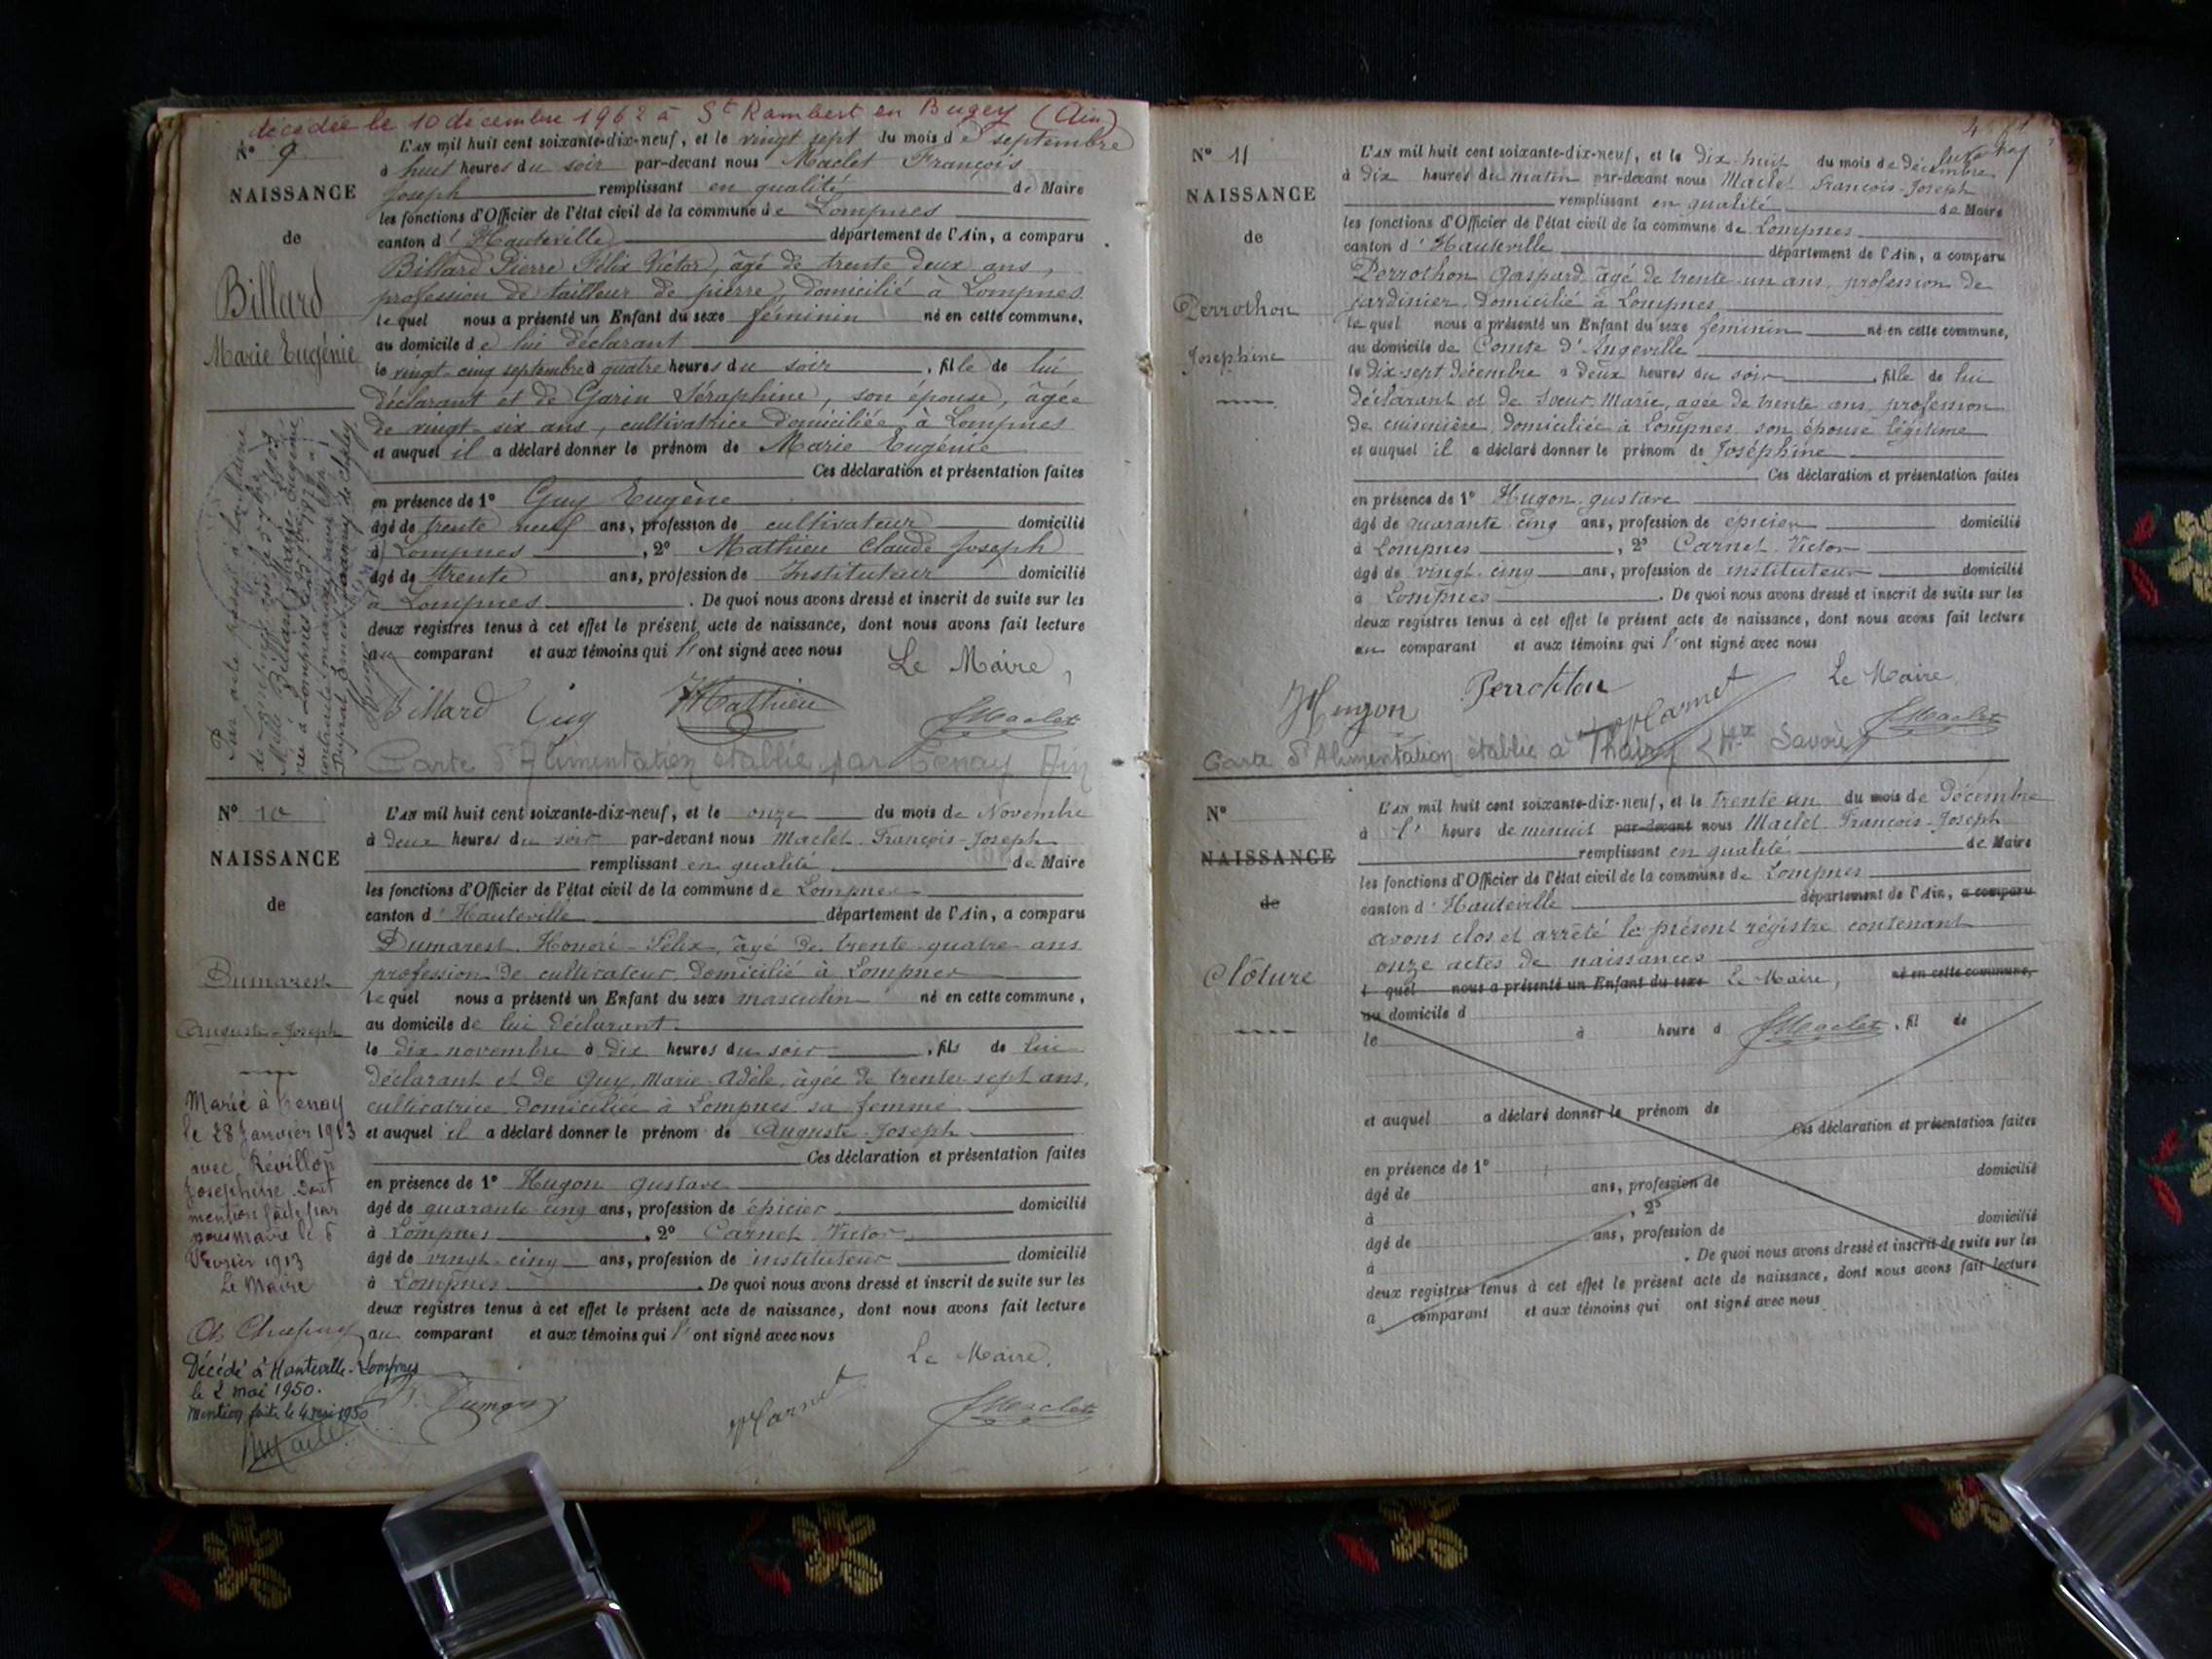 décédée le 10 décembre 1962 à St Rambert en Bugey (Ain)
N° 9
NAISSANCE
de
Billard
Marie Eugénie
L'AN mil huit cent soixante-dix-neuf, et le vingt sept du mois de septembre
à huit heures du soir par-devant nous Maclet François
Joseph remplissant en qualité de Maire
les fonctions d'Officier de l'état civil de la commune de Lompnes
canton d'Hauteville département de l'Ain, a comparu
Billard Pierre Félix Victor, âgé de trente deux ans,
profession de tailleur de pierre, domicilié à Lompnes
lequel nous a présenté un Enfant du sexe féminin né en cette commune,
au domicile de lui déclarant
le vingt-cinq septembre à quatre heures du soir, fille de lui
déclarant et de Garin Séraphine, son épouse, âgée
de vingt-six ans, cultivatrice domiciliée à Lompnes
et auquel il a déclaré donner le prénom de Marie Eugénie
Ces déclaration et présentation faites
en présence de 1° Guy Eugène
âgé de trente neuf ans, profession de cultivateur domicilié
à Lompnes, 2° Mathieu Claude Joseph
âgé de trente ans, profession de Instituteur domicilié
à Lompnes. De quoi nous avons dressé et inscrit de suite sur les
deux registres tenus à cet effet le présent acte de naissance, dont nous avons fait lecture
au comparant et aux témoins qui l'ont signé avec nous
Le Maire,
Billard Guy Mathieu FMaclet
Carte d'Alimentation établie par Tenay Ain
N° 10
NAISSANCE
de
Dumarest
Auguste-Joseph
Marié à Tenay
le 28 Janvier 1913
avec Révillon
Joséphine dont
mention faite par
nous Maire le 6
Février 1913
Le Maire
Décédé à Hauteville-Lompnes
le 2 mai 1950.
Mention faite le 4 mai 1950
L'AN mil huit cent soixante-dix-neuf, et le onze du mois de Novembre
à deux heures du soir par-devant nous Maclet François-Joseph
remplissant en qualité de Maire
les fonctions d'Officier de l'état civil de la commune de Lompnes
canton d'Hauteville département de l'Ain, a comparu
Dumarest Honoré-Félix, âgé de trente-quatre ans
profession de cultivateur, domicilié à Lompnes
lequel nous a présenté un Enfant du sexe masculin né en cette commune,
au domicile de lui déclarant.
le dix novembre à dix heures du soir, fils de lui
déclarant et de Guy, Marie-Adèle, âgée de trente-sept ans,
cultivatrice domiciliée à Lompnes sa femme
et auquel il a déclaré donner le prénom de Auguste-Joseph
Ces déclaration et présentation faites
en présence de 1° Hugon gustave
âgé de quarante-cinq ans, profession de épicier domicilié
à Lompnes, 2° Carnet Victor
âgé de vingt-cinq ans, profession de instituteur domicilié
à Lompnes. De quoi nous avons dressé et inscrit de suite sur les
deux registres tenus à cet effet le présent acte de naissance, dont nous avons fait lecture
au comparant et aux témoins qui l'ont signé avec nous
Le Maire.
VCarnet FMaclet
N° 11
NAISSANCE
de
Perrothon
Joséphine
L'AN mil huit cent soixante-dix-neuf, et le dix-huit du mois de décembre
à dix heures du matin par-devant nous Maclet François-Joseph
remplissant en qualité de Maire
les fonctions d'Officier de l'état civil de la commune de Lompnes
canton d'Hauteville département de l'Ain, a comparu
Perrothon Gaspard âgé de trente-un ans, profession de
jardinier, domicilié à Lompnes
lequel nous a présenté un Enfant du sexe féminin né en cette commune,
au domicile de Comte d'Angeville
le dix-sept décembre à deux heures du soir, fille de lui
déclarant et de Soeur Marie, agée de trente ans, profession
de cuisinière, domiciliée à Lompnes, son épouse légitime
et auquel il a déclaré donner le prénom de Joséphine
Ces déclaration et présentation faites
en présence de 1° Hugon gustave
âgé de quarante cinq ans, profession de épicier domicilié
à Lompnes, 2° Carnet Victor
âgé de vingt-cinq ans, profession de instituteur domicilié
à Lompnes. De quoi nous avons dressé et inscrit de suite sur les
deux registres tenus à cet effet le présent acte de naissance, dont nous avons fait lecture
au comparant et aux témoins qui l'ont signé avec nous
Le Maire,
Hugon Perrothon VCarnet FMaclet
Carte d'Alimentation établie à Thairy Hte Savoie
N°
NAISSANCE
de
Clôture
L'AN mil huit cent soixante-dix-neuf, et le trente un du mois de Décembre
à l'heure de minuit par-devant nous Maclet François-Joseph
remplissant en qualité de Maire
les fonctions d'Officier de l'état civil de la commune de Lompnes
canton d'Hauteville département de l'Ain, a comparu
avons clos et arrêté le présent régistre contenant
onze actes de naissances
l quel nous a présenté un Enfant du sexe Le Maire, né en cette commune,
au domicile d
le à heure d FMaclet, fil de
et auquel a déclaré donner le prénom de
Ces déclaration et présentation faites
en présence de 1° domicilié
âgé de ans, profession de
à , 2° domicilié
âgé de ans, profession de
à . De quoi nous avons dressé et inscrit de suite sur les
deux registres tenus à cet effet le présent acte de naissance, dont nous avons fait lecture
a comparant et aux témoins qui ont signé avec nous